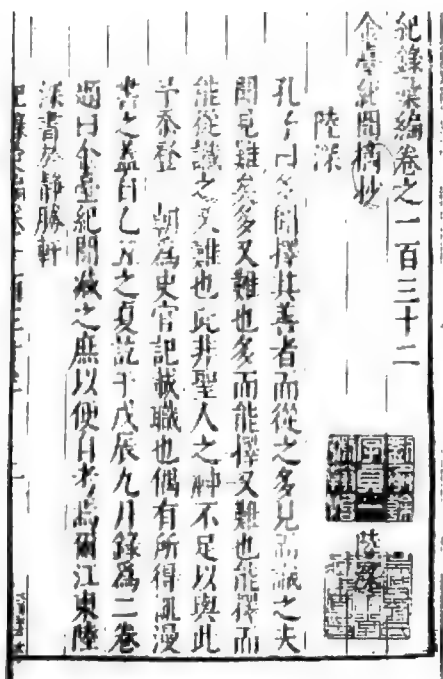 紀錄彙編卷之一百三十二
金臺紀聞摘抄
陸深
孔子曰多聞擇其善者而從之多見而識之夫
聞見難矣多又難也多而能擇又難也能擇而
能從識之又難也此非聖人之
不足以與此
予忝登 朝爲史官記載職也偶有所得輒漫
書之蓋自乙丑之夏訖于戊辰九月錄爲二卷
題曰金臺紀聞藏之庶以便自考焉爾江東陸
深書於靜勝軒